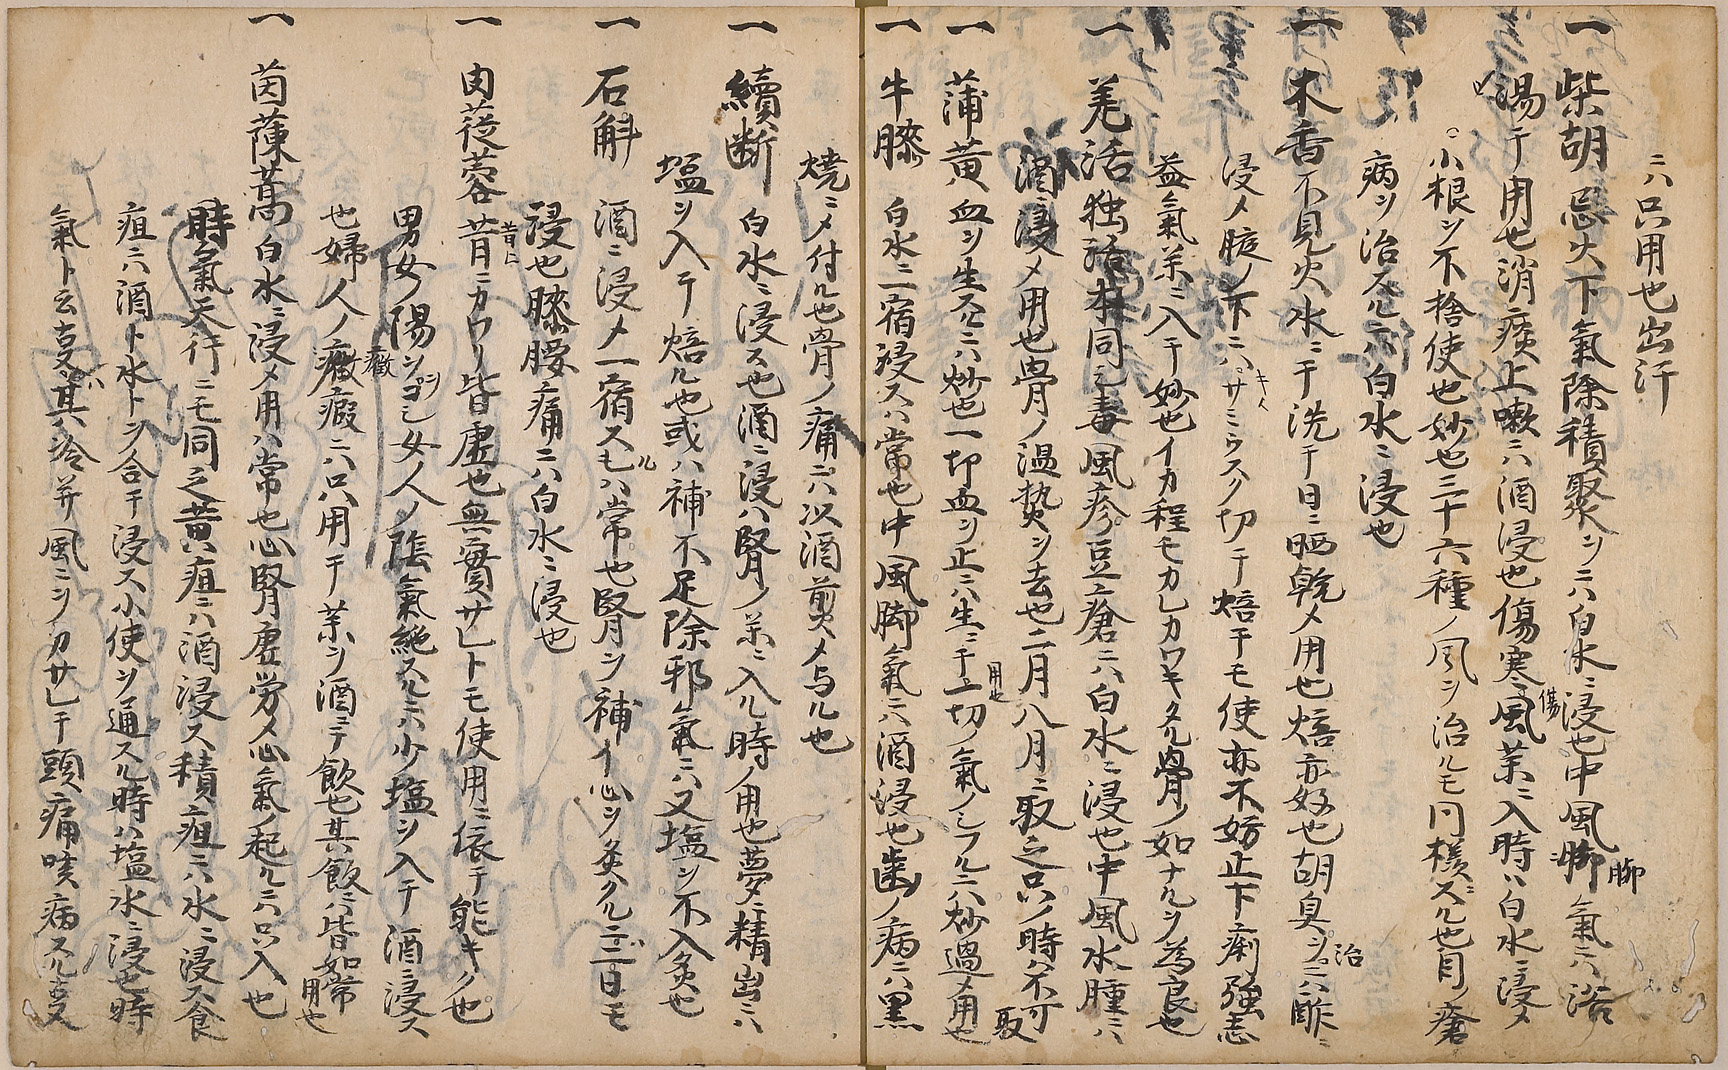 ニハ只用也出汗
一 柴胡 忌火下氣除積聚ヲニハ白水ニ浸也中風脚氣ニハ浴
湯ニテ用也消痰上嗽ニハ酒浸也傷寒風薬ニ入時ハ白水ニ浸メ
小根ヲ不捨使也妙也三十六種ノ風ヲ治ルモ同様ニスル也目ノ瘡
病ヲ治スルニハ白水ニ浸也
一 木香 不見火水ニテ洗テ日ニ晒乾メ用也焙亦好也胡臭ヲニハ酢ニ
浸メ腋ノ下ニハサミウスク切テ焙テモ使亦不妨止下痢強志
益氣薬ニ入テ妙也イカ程モカレカワキタル骨ノ如ナルヲ為良也
一 羌活 独活 本同之毒風疹豆瘡ニハ白水ニ浸也中風水腫ニハ
酒浸メ用也骨ノ温熱ヲ去也二月八月ニ取之只ノ時ハ不可取
一 蒲黄 血ヲ生スニハ炒也一切血ヲ止ニハ生ニテ一切ノ氣ノニハ炒過メ用也
一 牛膝 白水ニ一宿浸スハ常也中風脚氣ニハ酒浸也歯ノ病ニハ黒
焼ニメ付ル也骨ノ痛ニハ以酒煎メ与ル也
一 續断 白水ニ浸ス也酒ニ浸ハ腎ノ薬ニ入ル時ノ用也夢ニ精出ニハ
塩ヲ入テ焙ル也或ハ補不足除邪氣ニハ又塩ヲ不入灸也
一 石斛 酒ニ浸メ一宿スルハ常也腎ヲ補イ心ヲ灸クルニハ二日モ
浸也膝腰痛ニハ白水ニ浸也
一 肉蓯蓉 昔ニカワリ皆虚也無實サレトモ使用ニ依テ能キノ也
男女ノ陽ヲゴシ女人ノ陰氣絶スルニハ少塩ヲ入テ酒ニ浸ス
也婦人ノ癥瘕ニハ只用テ薬ヲ酒ニテ飲也其飲ハ皆如常用也
一 茵蔯蒿 白水ニ浸メ用ハ常也心腎虚労メ心氣ノ起ルニハ只入也
時氣天行ニモ同之黄疸ニハ酒浸ス積疸ニハ水ニ浸ス食
疸ニハ酒ト水トヲ合テ浸ス小使ヲ通スル時ハ塩水ニ浸也時
氣ト云支ハ其ハ冷并風ニヲカサレテ頭痛咳病スル支